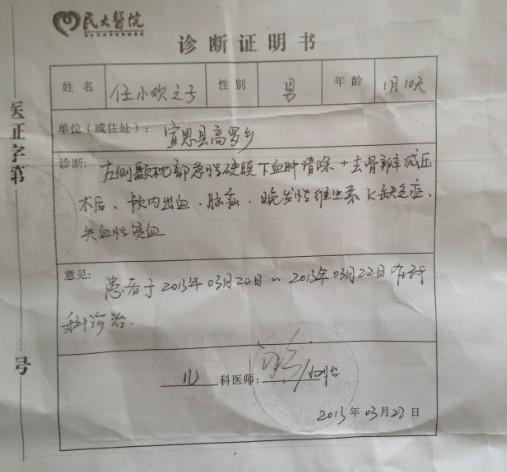 民大医院
诊断证明书
姓名 任小欢之子 性别 男 年龄 1月10天
单位(或住址): 宣恩县高罗乡
诊断: 左侧颞枕部急性硬膜下血肿清除+去骨瓣减压
术后、颅内出血、脑疝、晚发性维生素K缺乏症、
失血性贫血
意见: 患者于2013年03月20日~2013年03月22日在我
科诊治.
儿 科医师:
2013年03月23日
医正字第
号